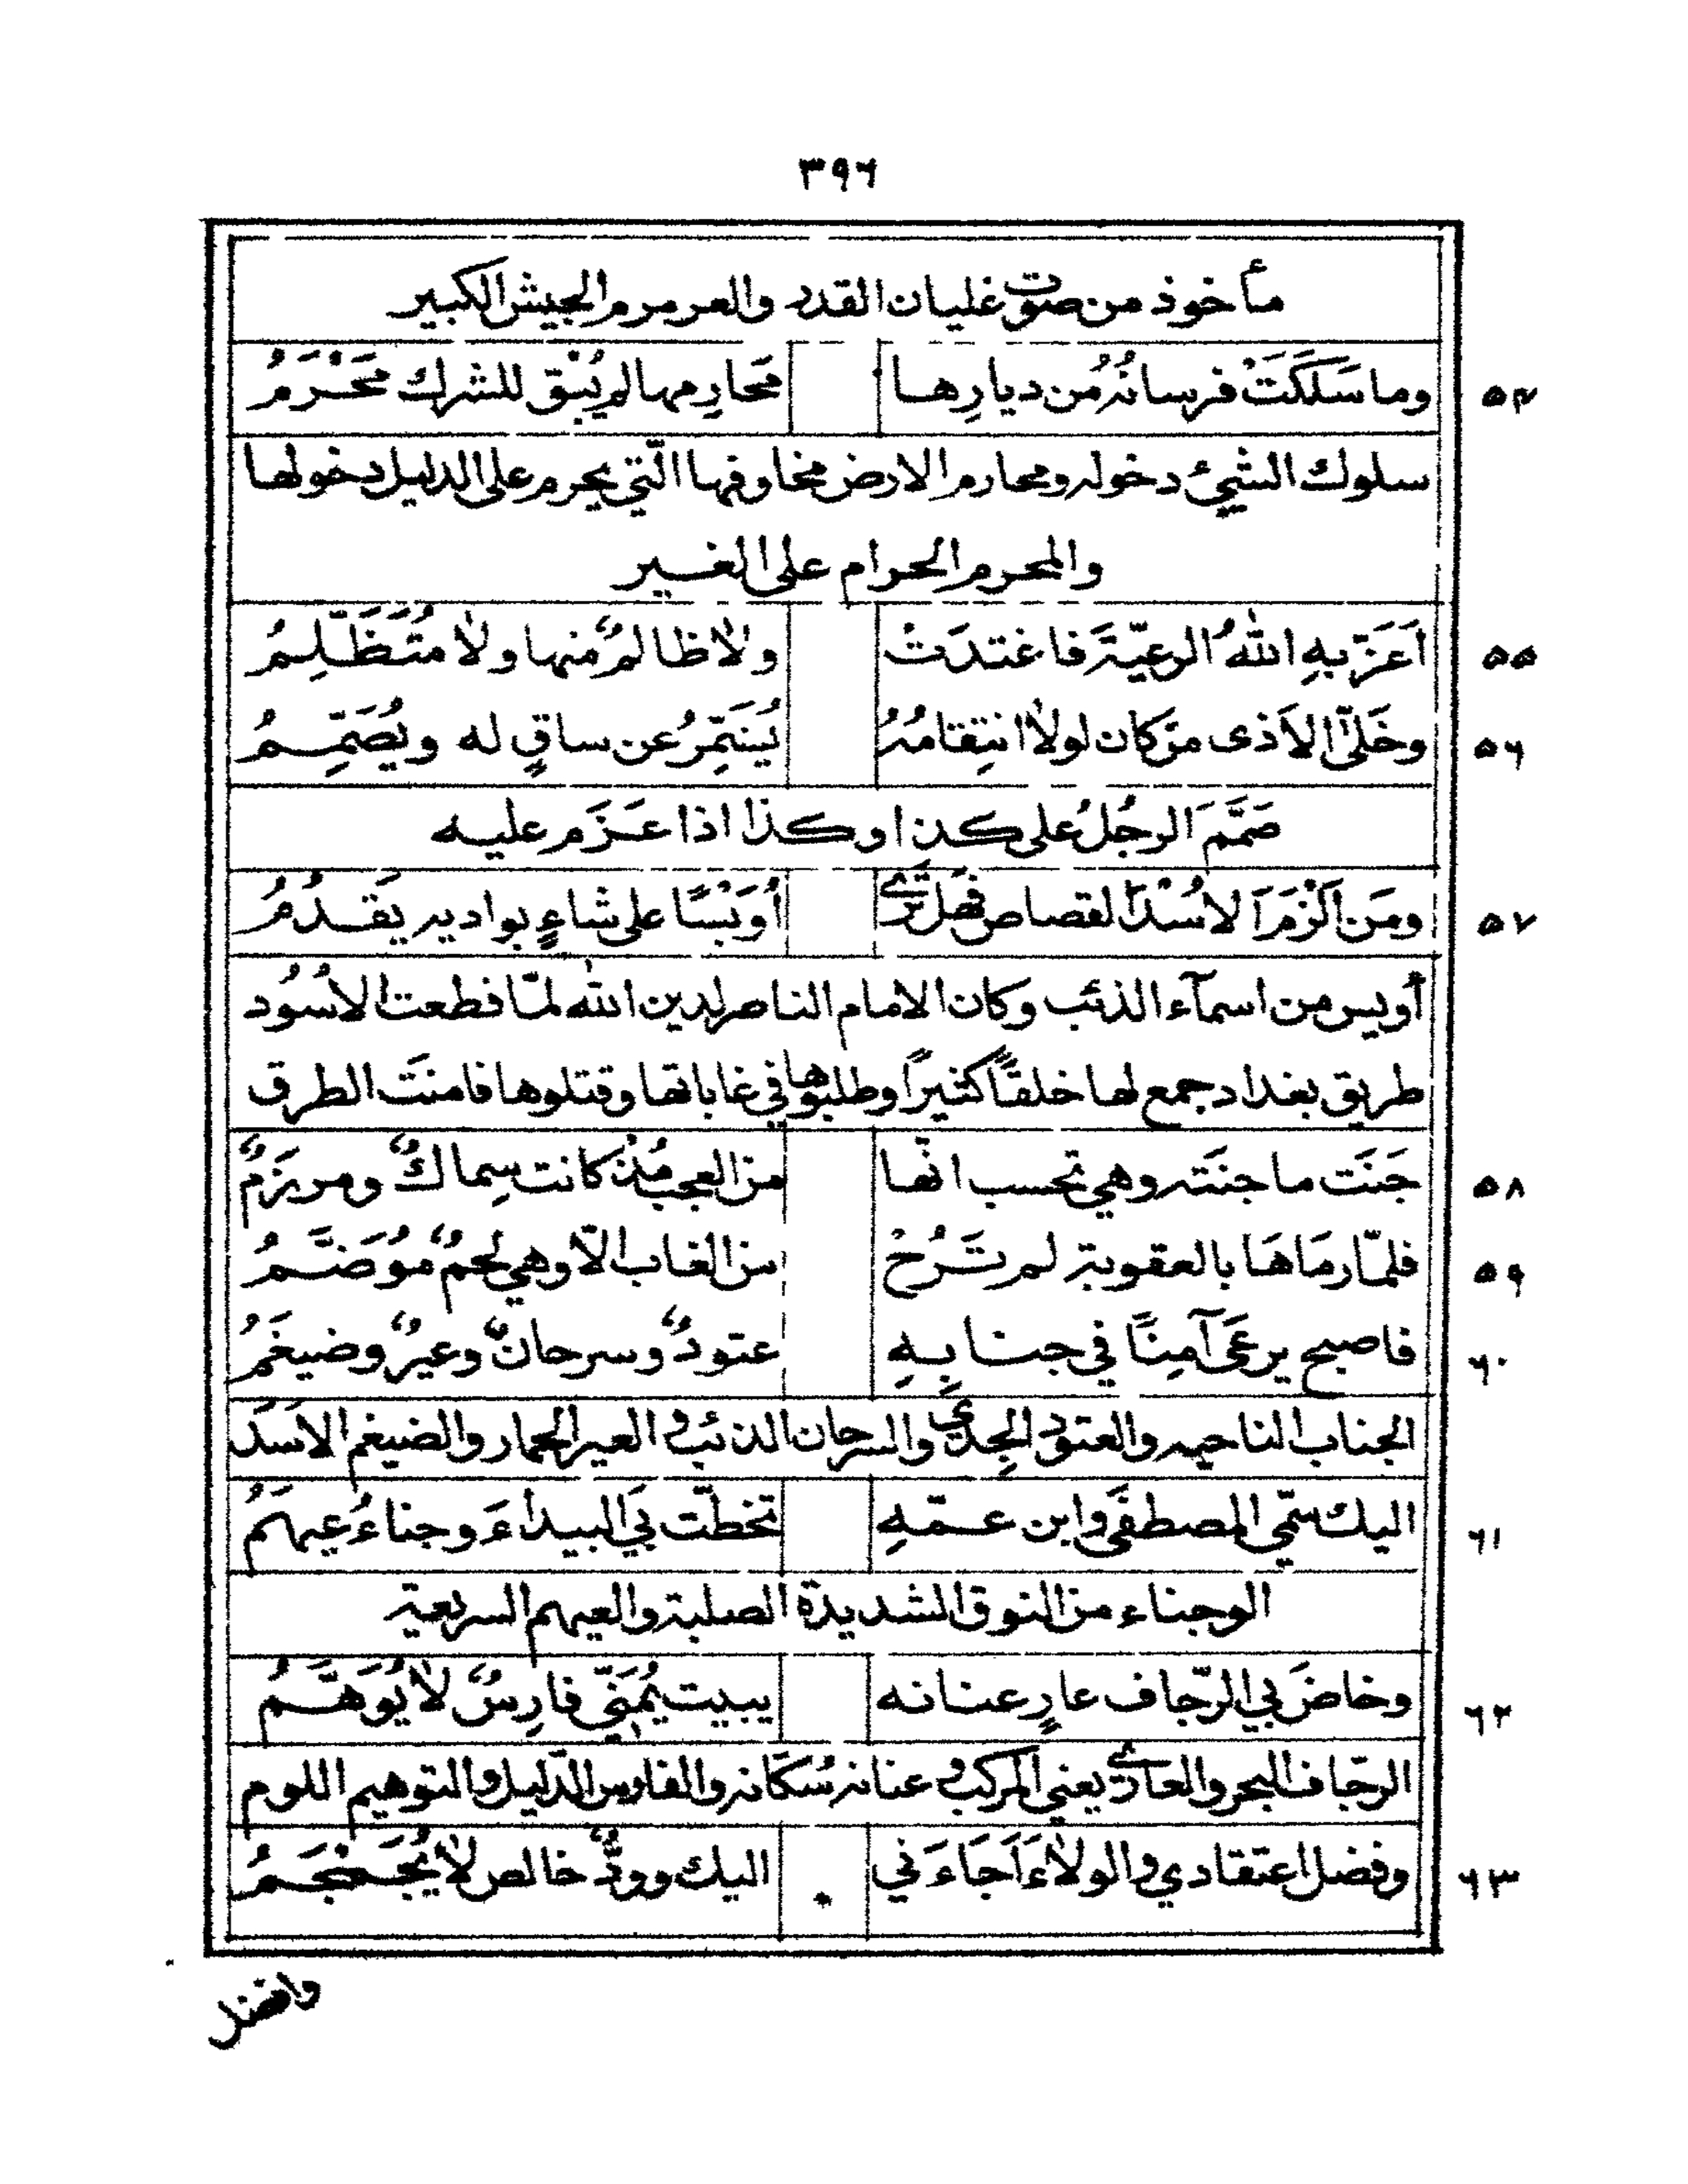 ٣٩٦
مأخوذ من صوت غليان القدر والعرمرم الجيش الكبير
٥٤ وما سَلَكَتْ فرسانُهُ من ديارِها محارِمها لم يُبْق للشرك مَحْرَمُ
سلوك الشيئ دخوله ومحارم الارض مخاوفها الّتي يحرم على الدليل دخولها
والمحرم الحرام على الغير
٥٥ اَعَزَّ بهِ اللهُ الرعيّةَ فاغتدَتْ ولا ظالمٌ منها ولا مُتَظَلِّمُ
٥٦ وخَلّى الاَذى مَن كان لولا انتِقامُهُ يُشَمِّرُ عن ساقٍ له ويُصَمِّمُ
صَمَّمَ الرجُلُ على كذا وكذا اذا عَزَم عليه
٥٧ ومَن اَلْزَمَ الاُسْدَ القصاص فهل تَرى أُوَيْسًا على شاءٍ بواديه يَقدُمُ
أُويس من اسمآء الذئب وكان الامام الناصر لدين الله لمّا قطعت الاُسُود
طريق بغداد جمع لها خلقًا كثيرًا وطلبوها في غاباتها وقتلوها فامنَت الطرق
٥٨ جَنَت ما جنَته وهي تحسب انّها من العجب مُذ كانت سِماكٌ ومرزَمٌ
٥٩ فلمّا رمَاهَا بالعقوبة لم تَرُحْ من الغاب الّا وهي لحمٌ مُوَضَّمُ
٦٠ فاصبح يرعَى آمِنًا في جنابِهِ عتودٌ وسرحانٌ وعيرٌ وضيغَمُ
الجناب الناحيه والعتود الجِدْي والسرحان الذئب و العير الحمار والضيغم الاَسَد
٦١ اليك سَمّي المصطفَى وابن عمّهِ تخطّت بيَ البيداءَ وجناءُ عيهَمُ
الوجناء من النوق الشديدة الصلبة والعيهم السريعة
٦٢ وخاضَ بي الرّجاف عارٍ عنانه يبيت يُمَنّي فارِسٌ لا يُوَهَّمُ
الرجّاف البحر والعاري يعني المركب و عنانه سُكّانه والفارس الدّليل والتوهيم اللوم
٦٣ وفضل اعتقادي والولاءَ اَجَاءَني * اليك وودٌّ خالص لا يُجَمْجَمُ
وافضل